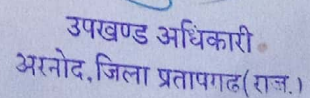 उपखण्ड अधिकारी
अरनोद, जिला प्रतापगढ (राज.)